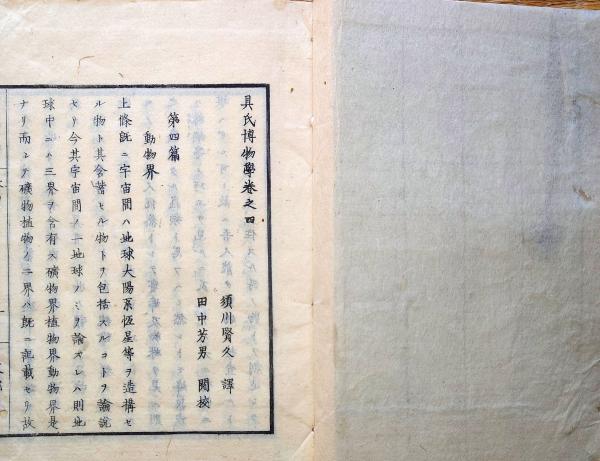 具氏博物學卷之四
須川賢久 譯
田中芳男 閲校
第四篇
動物界
上條既ニ宇宙間ハ地球大陽系恆星等ヲ造構セ
ル物ト其含蓄セル物トヲ包括スルコトヲ論説
セリ今其宇宙間ノ一地球ノミヲ論ズレハ則地
球中ニハ三界ヲ含有ス礦物界植物界動物界是
ナリ而シテ礦物植物ノ二界ハ既ニ記載セリ故